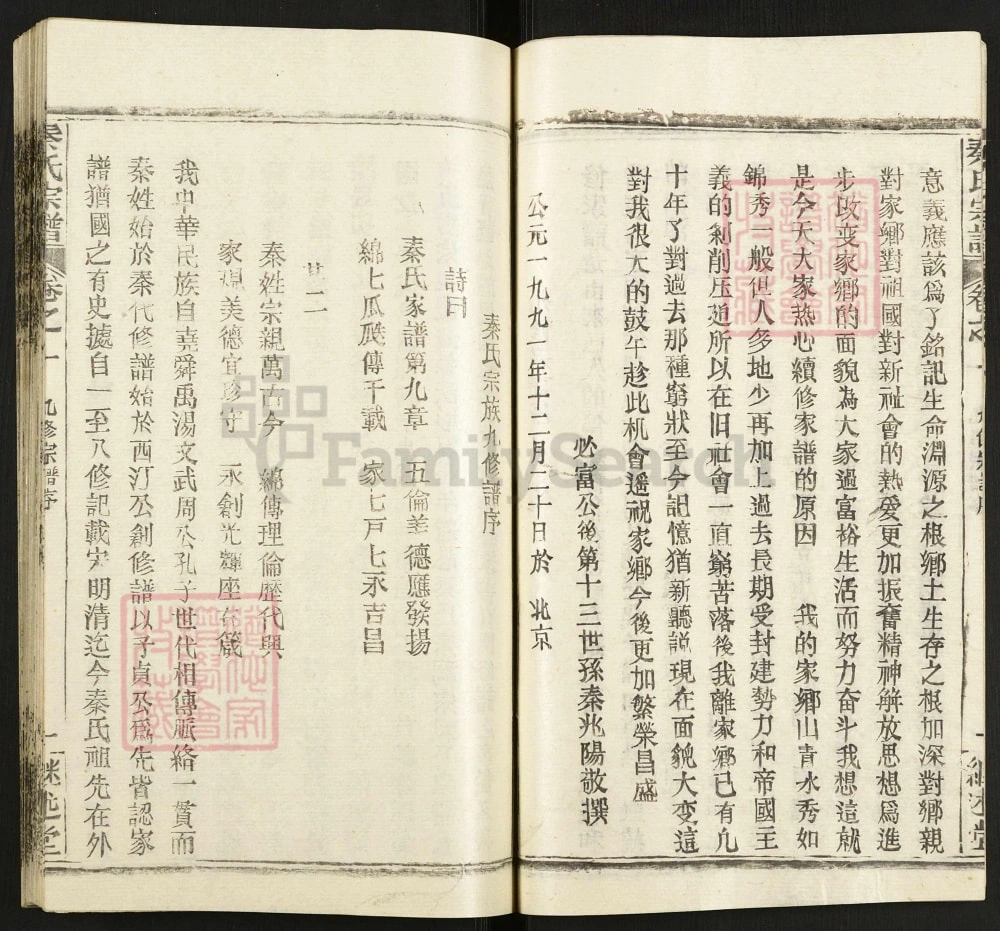 意義應該爲了銘記生命淵源之根鄉土生存之根加深對鄉親
對家鄉對祖國對新社會的熱愛更加振奮精神解放思想爲進
步改变家鄉的面貌為大家過富裕生活而努力奋斗我想這就
是今天大家热心續修家譜的原因 我的家鄉山青水秀如
錦秀一般但人多地少再加上過去長期受封建勢力和帝國主
義的剝削压迫所以在旧社會一直窮苦落後我離家鄉已有几
十年了對過去那種窮狀至今記憶猶新聽説現在面貌大变這
對我很大的鼓午趁此机會遥祝家鄉今後更加繁榮昌盛
必富公後第十三世孫秦兆陽敬撰
公元一九九一年十二月二十日於 北京
秦氏宗譜
秦氏宗族九修譜序
詩曰
秦氏家譜第九章 五倫美德應發揚
綿七瓜瓞傳千載 家七戸七永吉昌
其二
秦姓宗親萬古今 綿傳理倫歷代興
家規美德宜珍守 永創光輝座右箴
我中華民族自堯舜禹湯文武周公孔子世代相傳脈絡一貫而
秦姓始於秦代修譜始於西汀公創修譜以子貞公爲先皆認家
譜猶國之有史據自一至八修記載宋明清迄今秦氏祖先在外
秦氏宗譜 卷之一 九修宗譜序 一 継述堂
FamilySearch